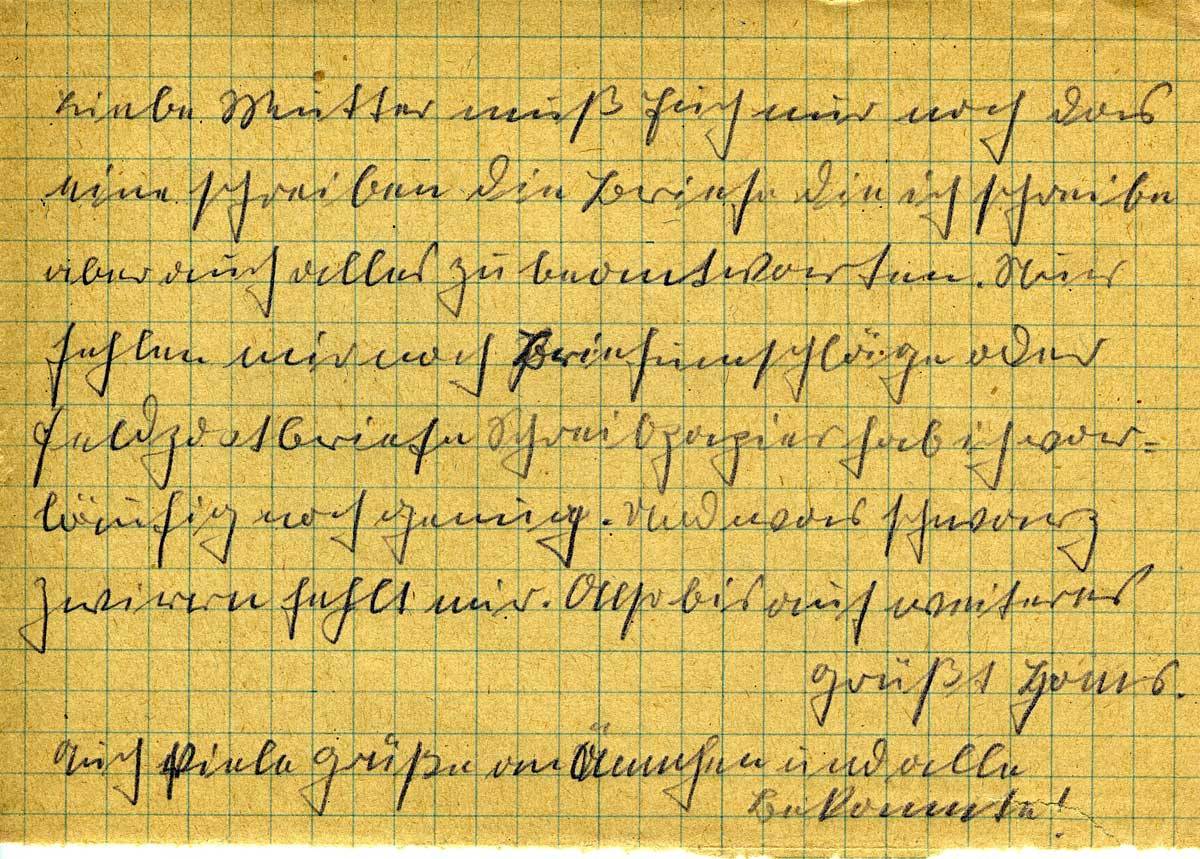 Liebe Mutter muß Euch nur noch das
eine schreiben die Briefe die ich schreibe
aber auch alles zu beantworten. Nur
fehlen mir noch Briefumschläge oder
Feldpostbriefe Schreibpapier hab ich vor=
läufig noch genug. Und was schwarz
Zwirrn fehlt mir. Also bis auf weiteres
grüßt Hans.
Auch Viele Grüße an Ännchen und alle
Bekannte!